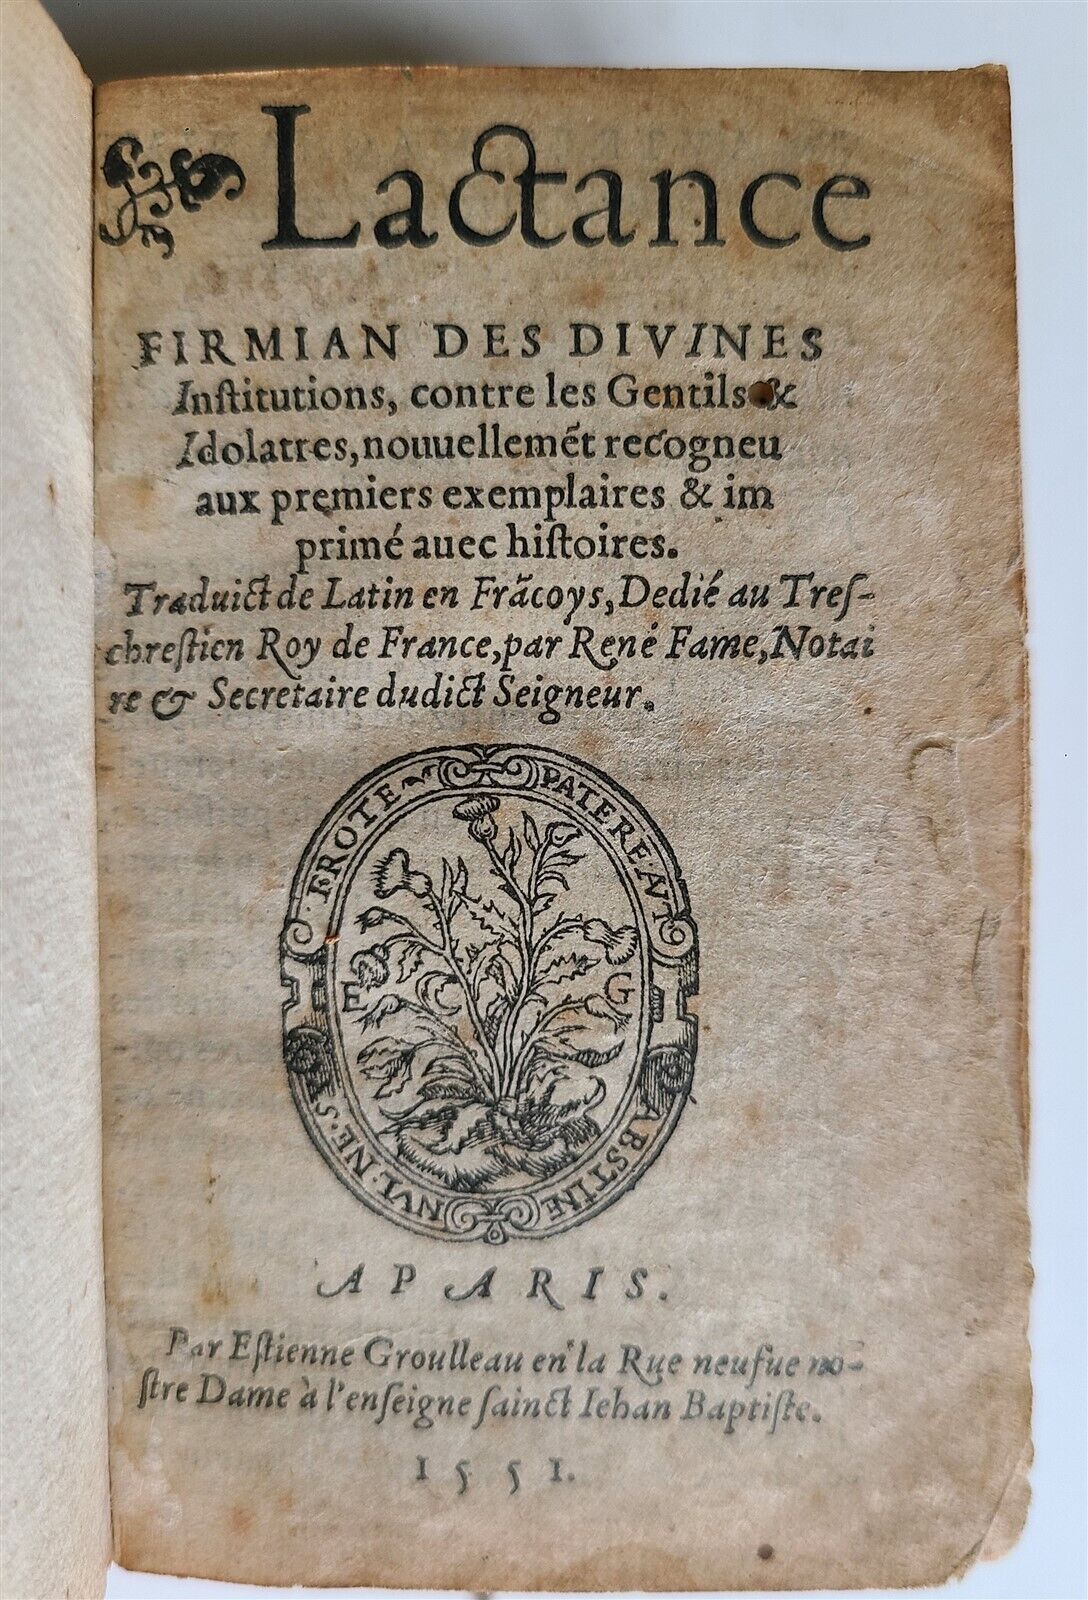 Lactance
FIRMIAN DES DIVINES
Inſtitutions, contre les Gentils &
Idolatres, nouuellemẽt recogneu
aux premiers exemplaires & im
primé auec hiſtoires.
Traduict de Latin en Frãcoys, Dedié au Treſ-
chreſtien Roy de France, par René Fame, Notai
re & Secretaire dudict Seigneur.
PATERE·AVT
ABSTINE
NVL·NE·SI·
FROTE
E G
A PARIS.
Par Eſtienne Groulleau en la Rue neufue no-
ſtre Dame à l'enſeigne ſainct Iehan Baptiſte.
1551.